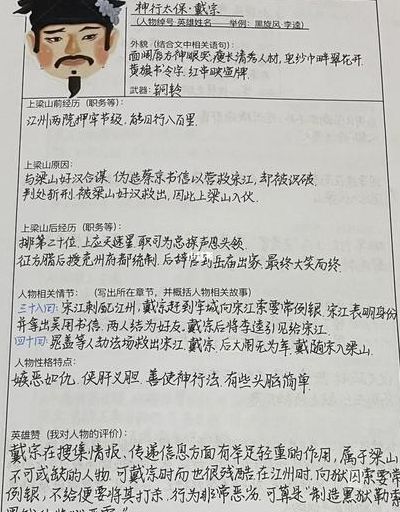 神行太保·戴宗
(人物绰号·英雄姓名——举例:黑旋风 李逵)
外貌(结合文中相关语句):
面阔唇方神眼突,瘦长清秀人材,皂纱巾畔翠花开.
黄旗书令字,红串映宣牌.
武器:铜铃
上梁山前经历(职务等):
江州两院押牢节级,能日行八百里.
上梁山原因:
与梁山好汉合谋,伪造蔡京书信以营救宋江,却被识破.
判处斩刑.被梁山好汉救出,因此上梁山入伙.
上梁山后经历(职务等):
排第二十位,上应天速星,职司为总探声息头领.
征方腊后授兖州府都统制,后辞官到岳庙出家,最终大笑而终.
人物相关情节:(写出所在章节,并概括人物相关故事)
三十八回:宋江刺配江州,戴宗赶到牢城向宋江索要常例银.宋江表明身份
并拿出吴用书信.两人结为好友.戴宗后将李逵引见给宋江.
四十回:晁盖等人劫法场救出宋江、戴宗.后大闹无为军.戴随宋入梁山.
人物性格特点:
嫉恶如仇.侠肝义胆.善使神行法.有些头脑简单.
英雄赞(我对人物的评价):
戴宗在搜集情报、传递信息方面有举足轻重的作用,属于梁山
不可或缺的人物.可戴宗时而也很残酷.在江州时,向狱囚索要常
例银,不给便要将其打杀,行为非常恶劣.可算是"制造黑狱勒索